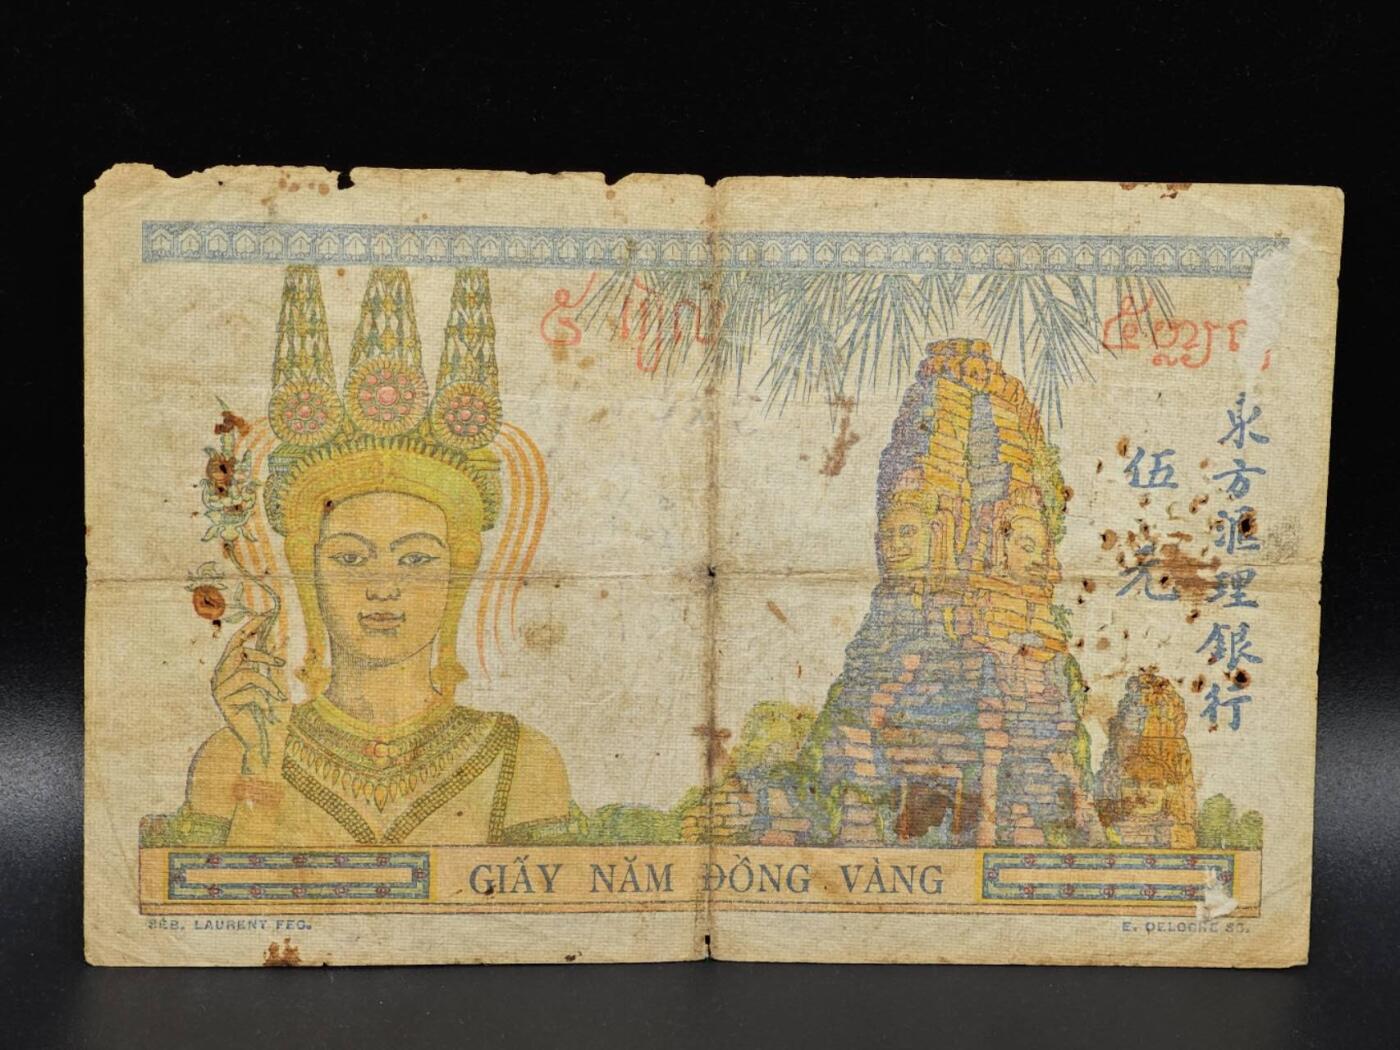 東方滙理銀行
伍元
GIẤY NĂM ĐỒNG VÀNG
SÉB. LAURENT FEC.
E. DELOCHE SC.